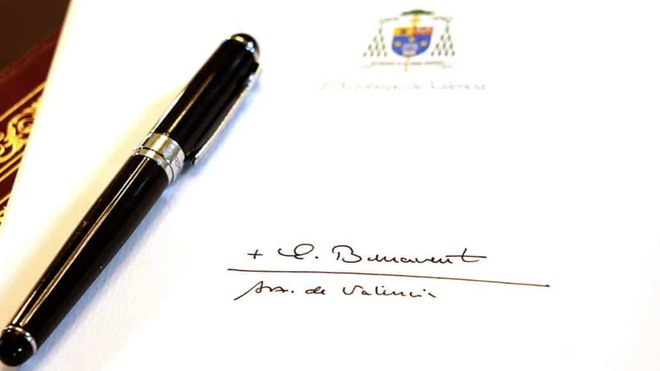 Arzobispo de Valencia
+ E. Benavent
Arz. de Valencia